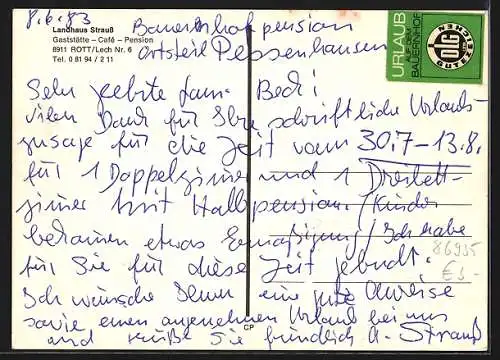 8.6.83
Landhaus Strauß
Gaststätte - Café - Pension
8911 ROTT/Lech Nr. 6
Tel. 0 81 94 / 2 11
Bauernhofpension
Ortsteil Pessenhausen
URLAUB
AUF DEM
BAUERNHOF
DLG
GÜTEZEICHEN
Sehr geehrte Fam. Beck!
vielen Dank für Ihre schriftliche Urlaubs-
zusage für die Zeit vom 30.7-13.8.
für 1 Doppelzimmer und 1 Dreibett-
zimer mit Halbpension/Kinder
bekommen etwas Ermäßigung/Ich habe
für Sie für diese Zeit gebucht.
Ich wünsche Ihnen eine gute Anreise
sowie einen angenehmen Urlaub bei uns
und grüße Sie freundlich A. Strauß
86935
€ 3.-
CP